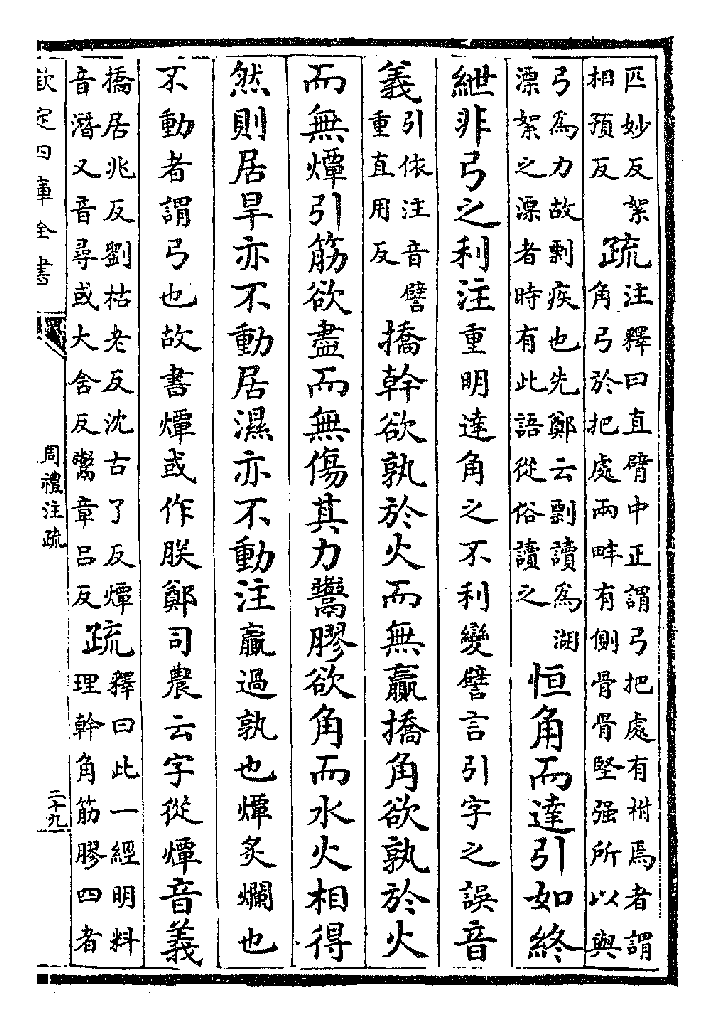 匹妙反絮
相預反
疏
注釋曰直臂中正謂弓把處有柎焉者謂
角弓於把處兩畔有側骨骨堅强所以與
弓為力故剽疾也先鄭云剽讀為湖
漂絮之漂者時有此語從俗讀之
恒角而達引如終
紲非弓之利注重明達角之不利變譬言引字之誤音
義
引依注音譬
重直用反
撟幹欲孰於火而無贏撟角欲孰於火
而無燂引筋欲盡而無傷其力鬻膠欲角而水火相得
然則居旱亦不動居濕亦不動注贏過孰也燂炙爛也
不動者謂弓也故書燂或作朕鄭司農云字從燂音義
撟居兆反劉枯老反沈古了反燂
音潛又音尋或大含反鬻章呂反
疏
釋曰此一經明料
理幹角筋膠四者
欽定四庫全書
周禮注疏
二十九